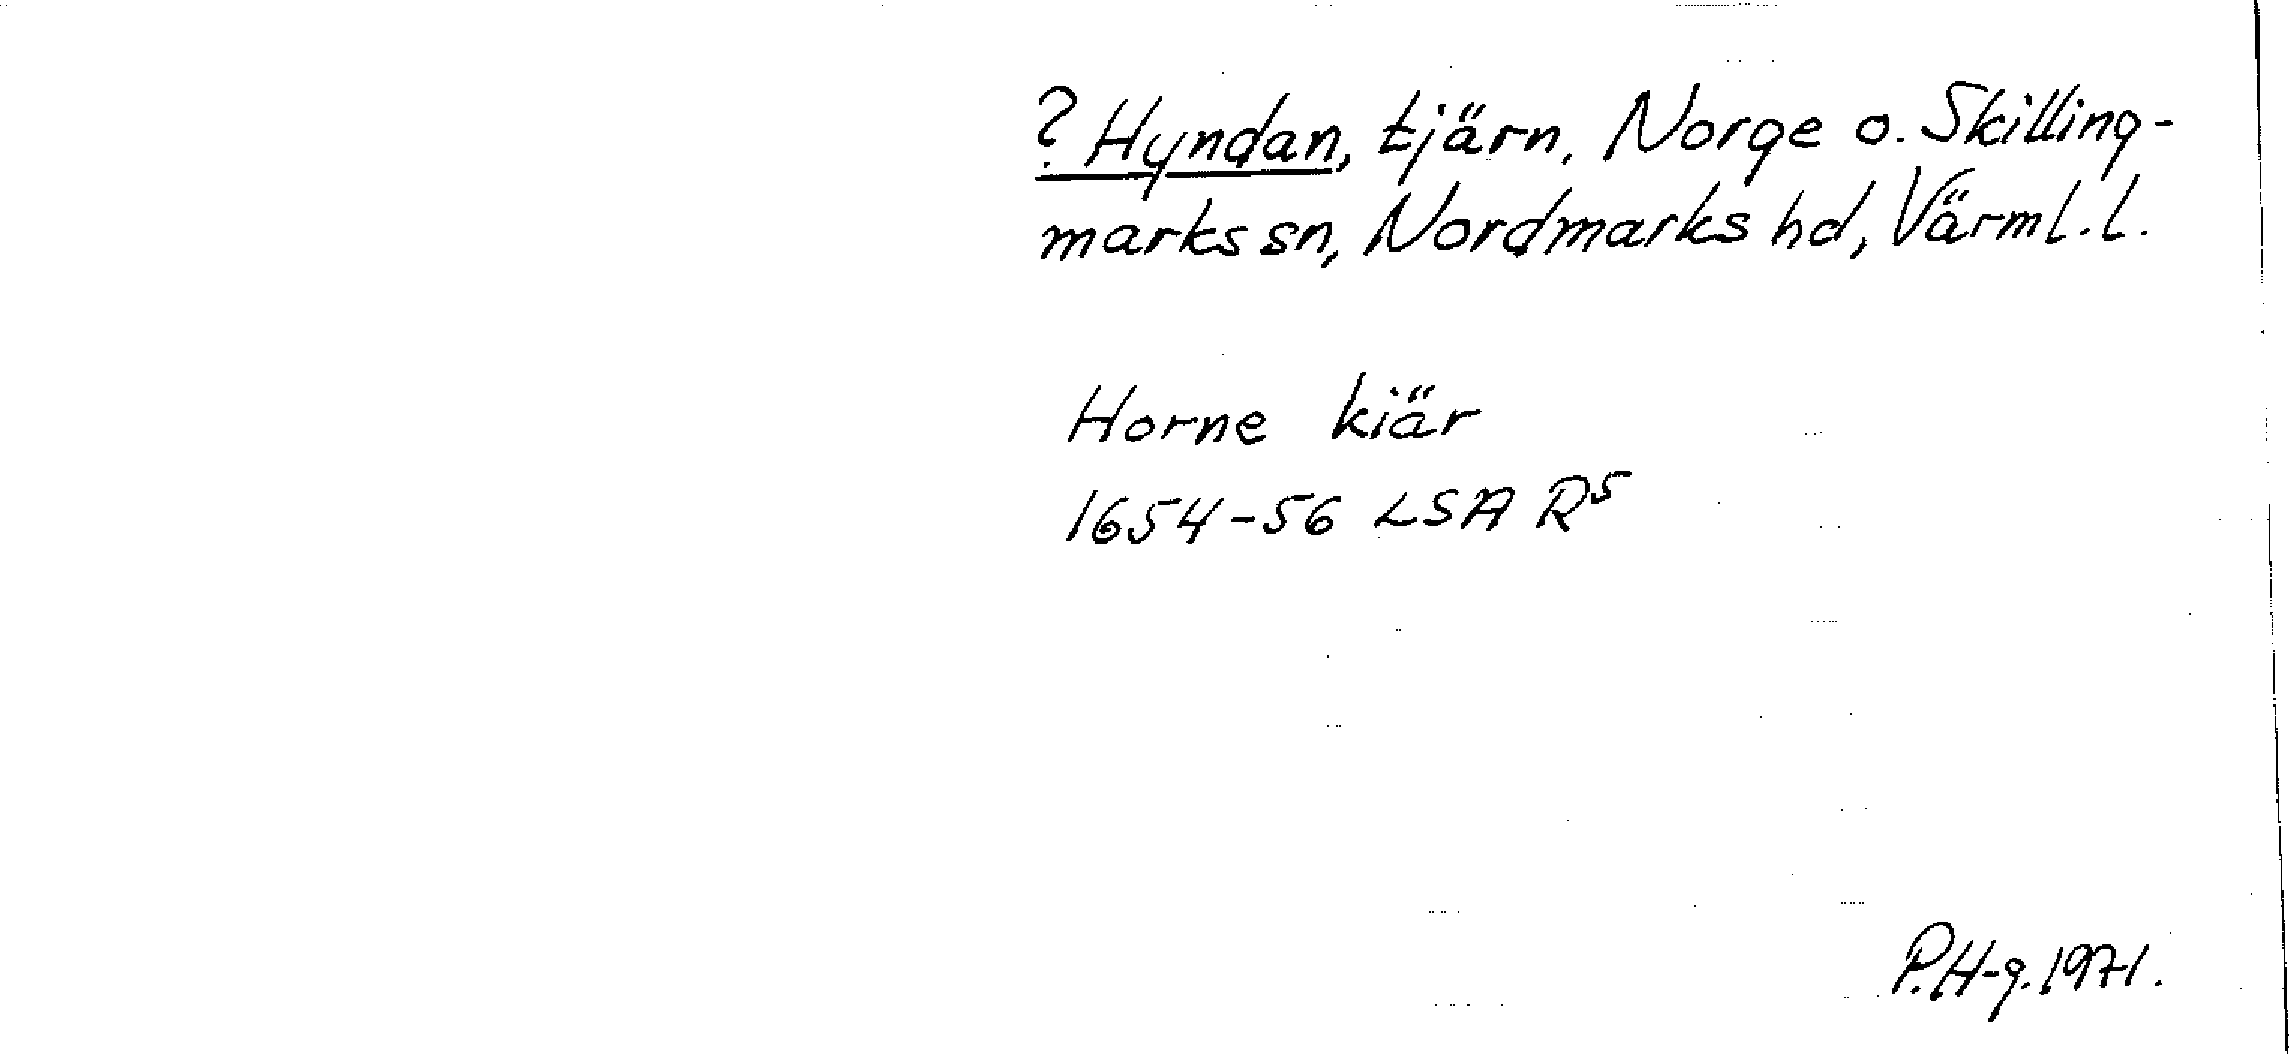 ? Hyndan, tjärn, Norge o. Skilling-
marks sn, Nordmarks hd, Värml. l.
Horne kiär
1654-56 LSA R⁵
P.H-g. 1971.